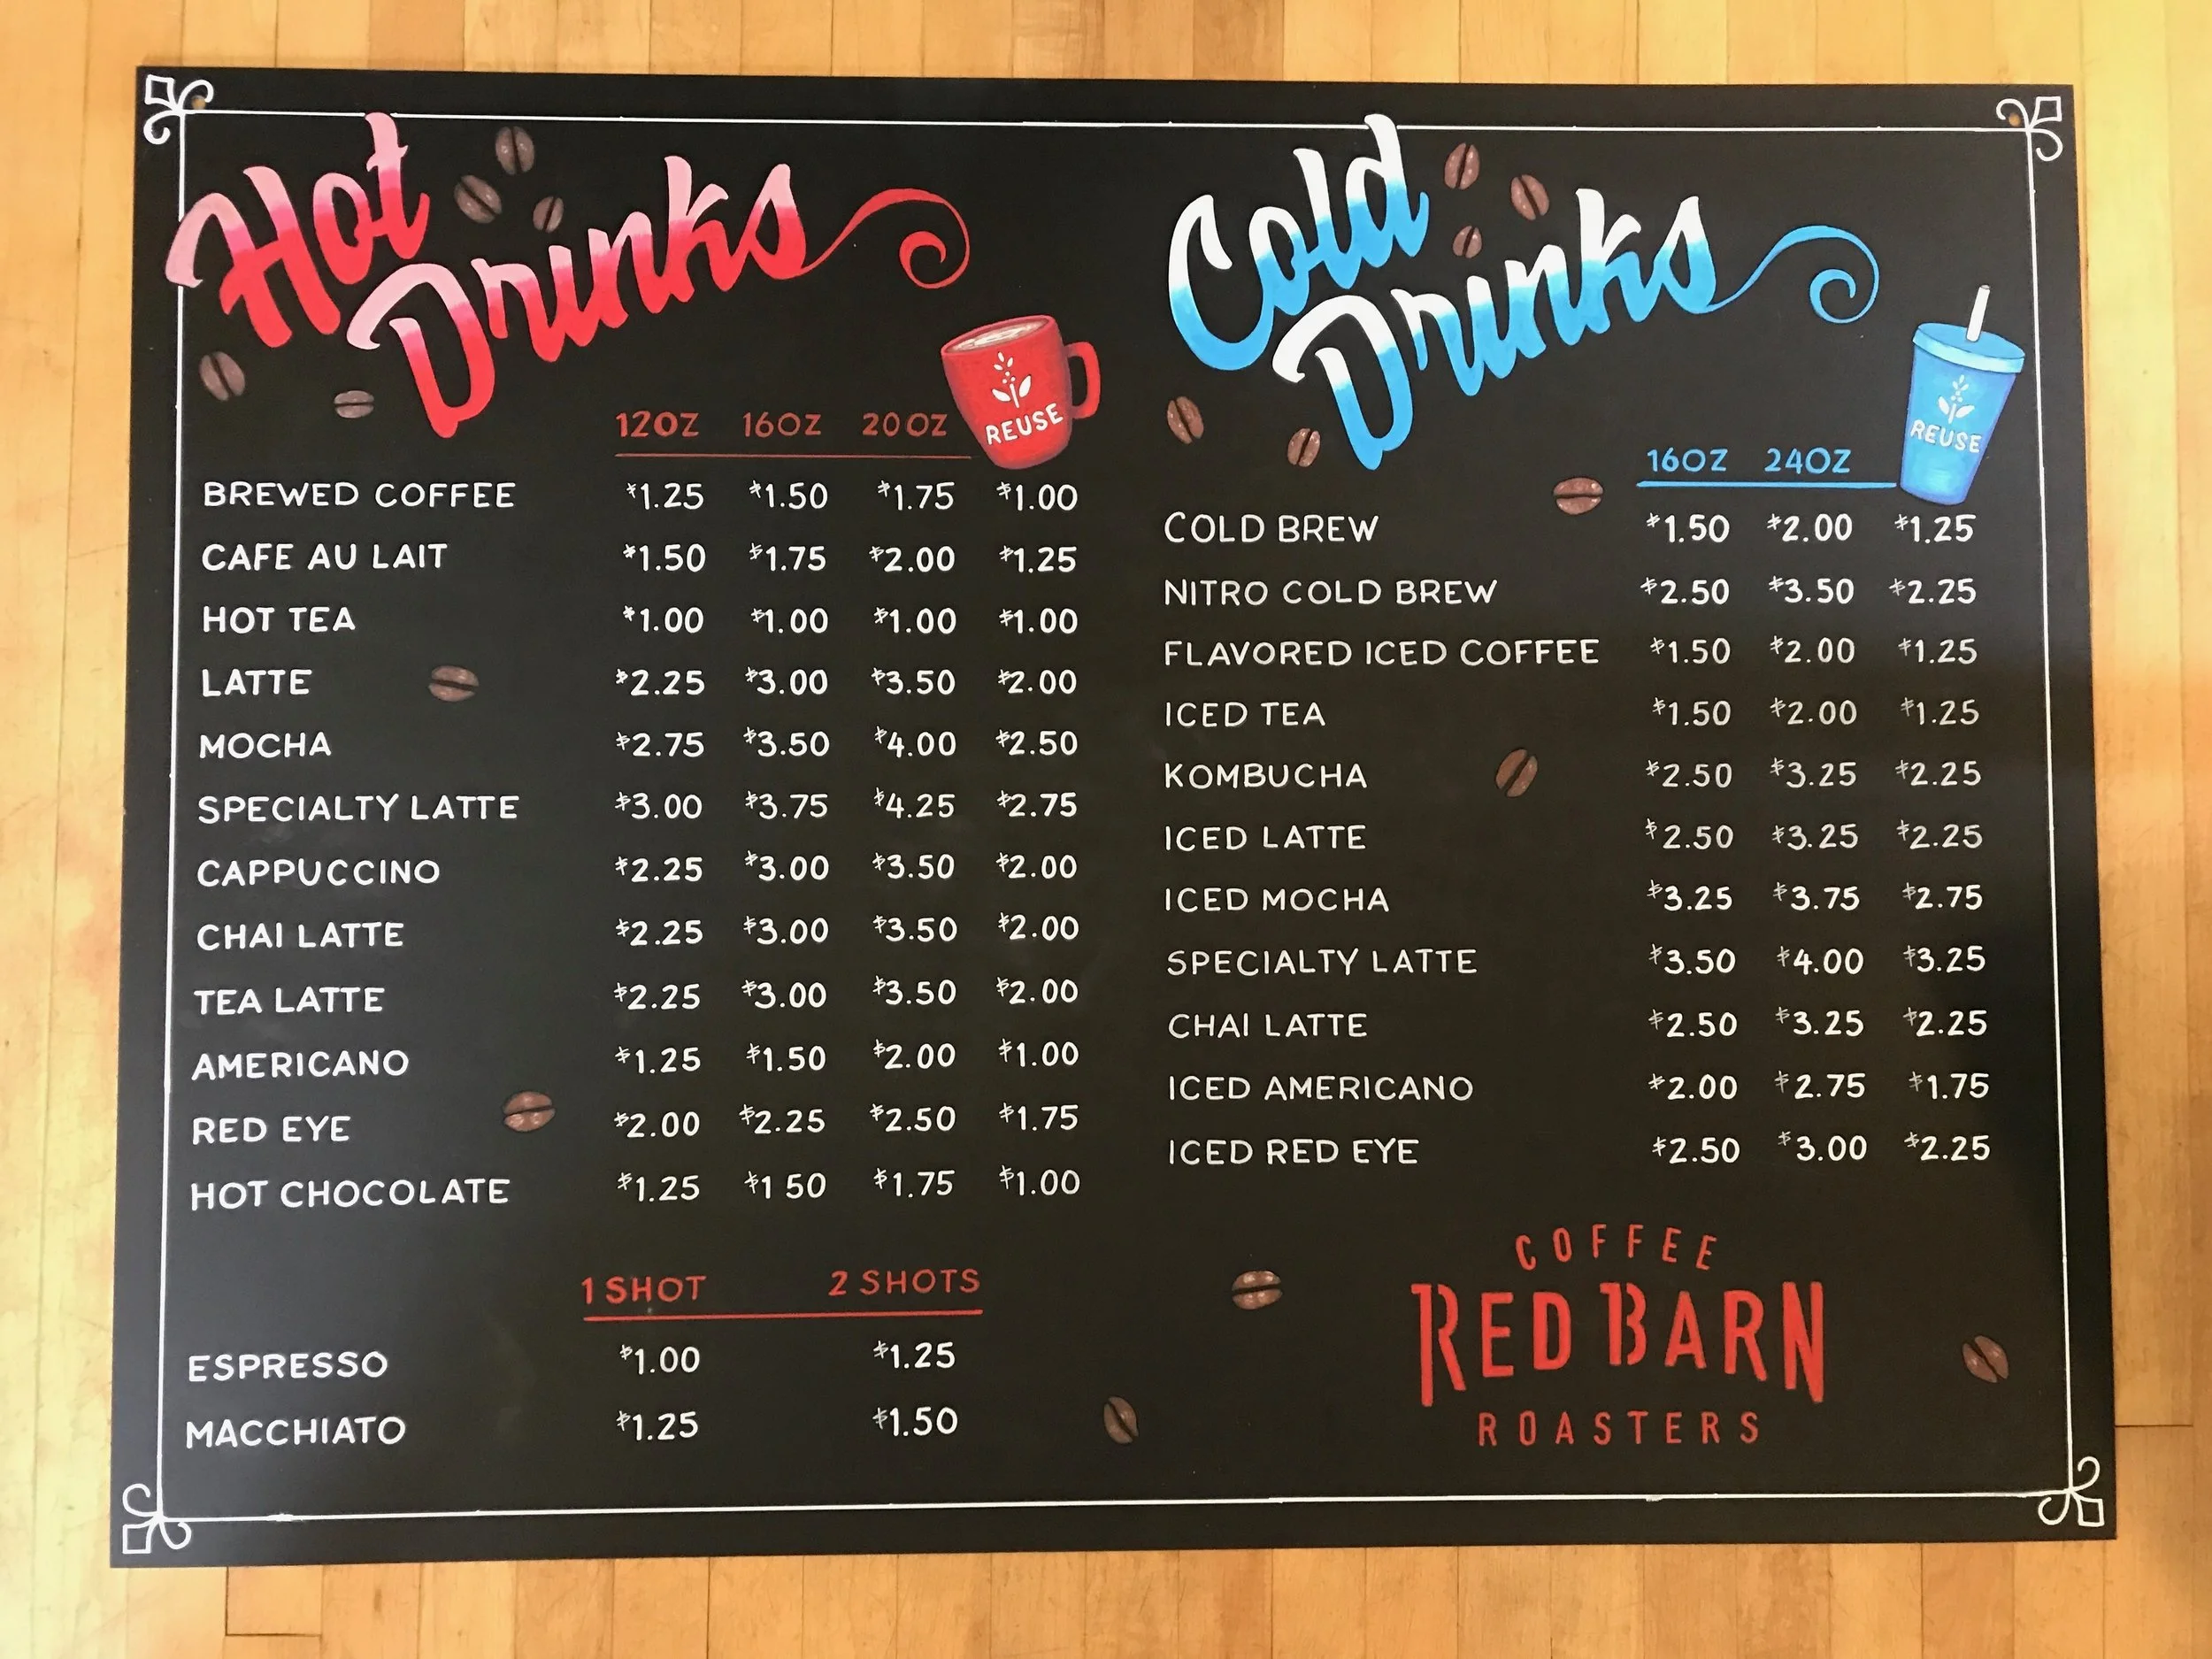 Hot
Drinks
12OZ 16OZ 20OZ REUSE
BREWED COFFEE $1.25 $1.50 $1.75 $1.00
CAFE AU LAIT $1.50 $1.75 $2.00 $1.25
HOT TEA $1.00 $1.00 $1.00 $1.00
LATTE $2.25 $3.00 $3.50 $2.00
MOCHA $2.75 $3.50 $4.00 $2.50
SPECIALTY LATTE $3.00 $3.75 $4.25 $2.75
CAPPUCCINO $2.25 $3.00 $3.50 $2.00
CHAI LATTE $2.25 $3.00 $3.50 $2.00
TEA LATTE $2.25 $3.00 $3.50 $2.00
AMERICANO $1.25 $1.50 $2.00 $1.00
RED EYE $2.00 $2.25 $2.50 $1.75
HOT CHOCOLATE $1.25 $1 50 $1.75 $1.00
1 SHOT 2 SHOTS
ESPRESSO $1.00 $1.25
MACCHIATO $1.25 $1.50
Cold
Drinks
16OZ 24OZ REUSE
COLD BREW $1.50 $2.00 $1.25
NITRO COLD BREW $2.50 $3.50 $2.25
FLAVORED ICED COFFEE $1.50 $2.00 $1.25
ICED TEA $1.50 $2.00 $1.25
KOMBUCHA $2.50 $3.25 $2.25
ICED LATTE $2.50 $3.25 $2.25
ICED MOCHA $3.25 $3.75 $2.75
SPECIALTY LATTE $3.50 $4.00 $3.25
CHAI LATTE $2.50 $3.25 $2.25
ICED AMERICANO $2.00 $2.75 $1.75
ICED RED EYE $2.50 $3.00 $2.25
COFFEE
RED BARN
ROASTERS